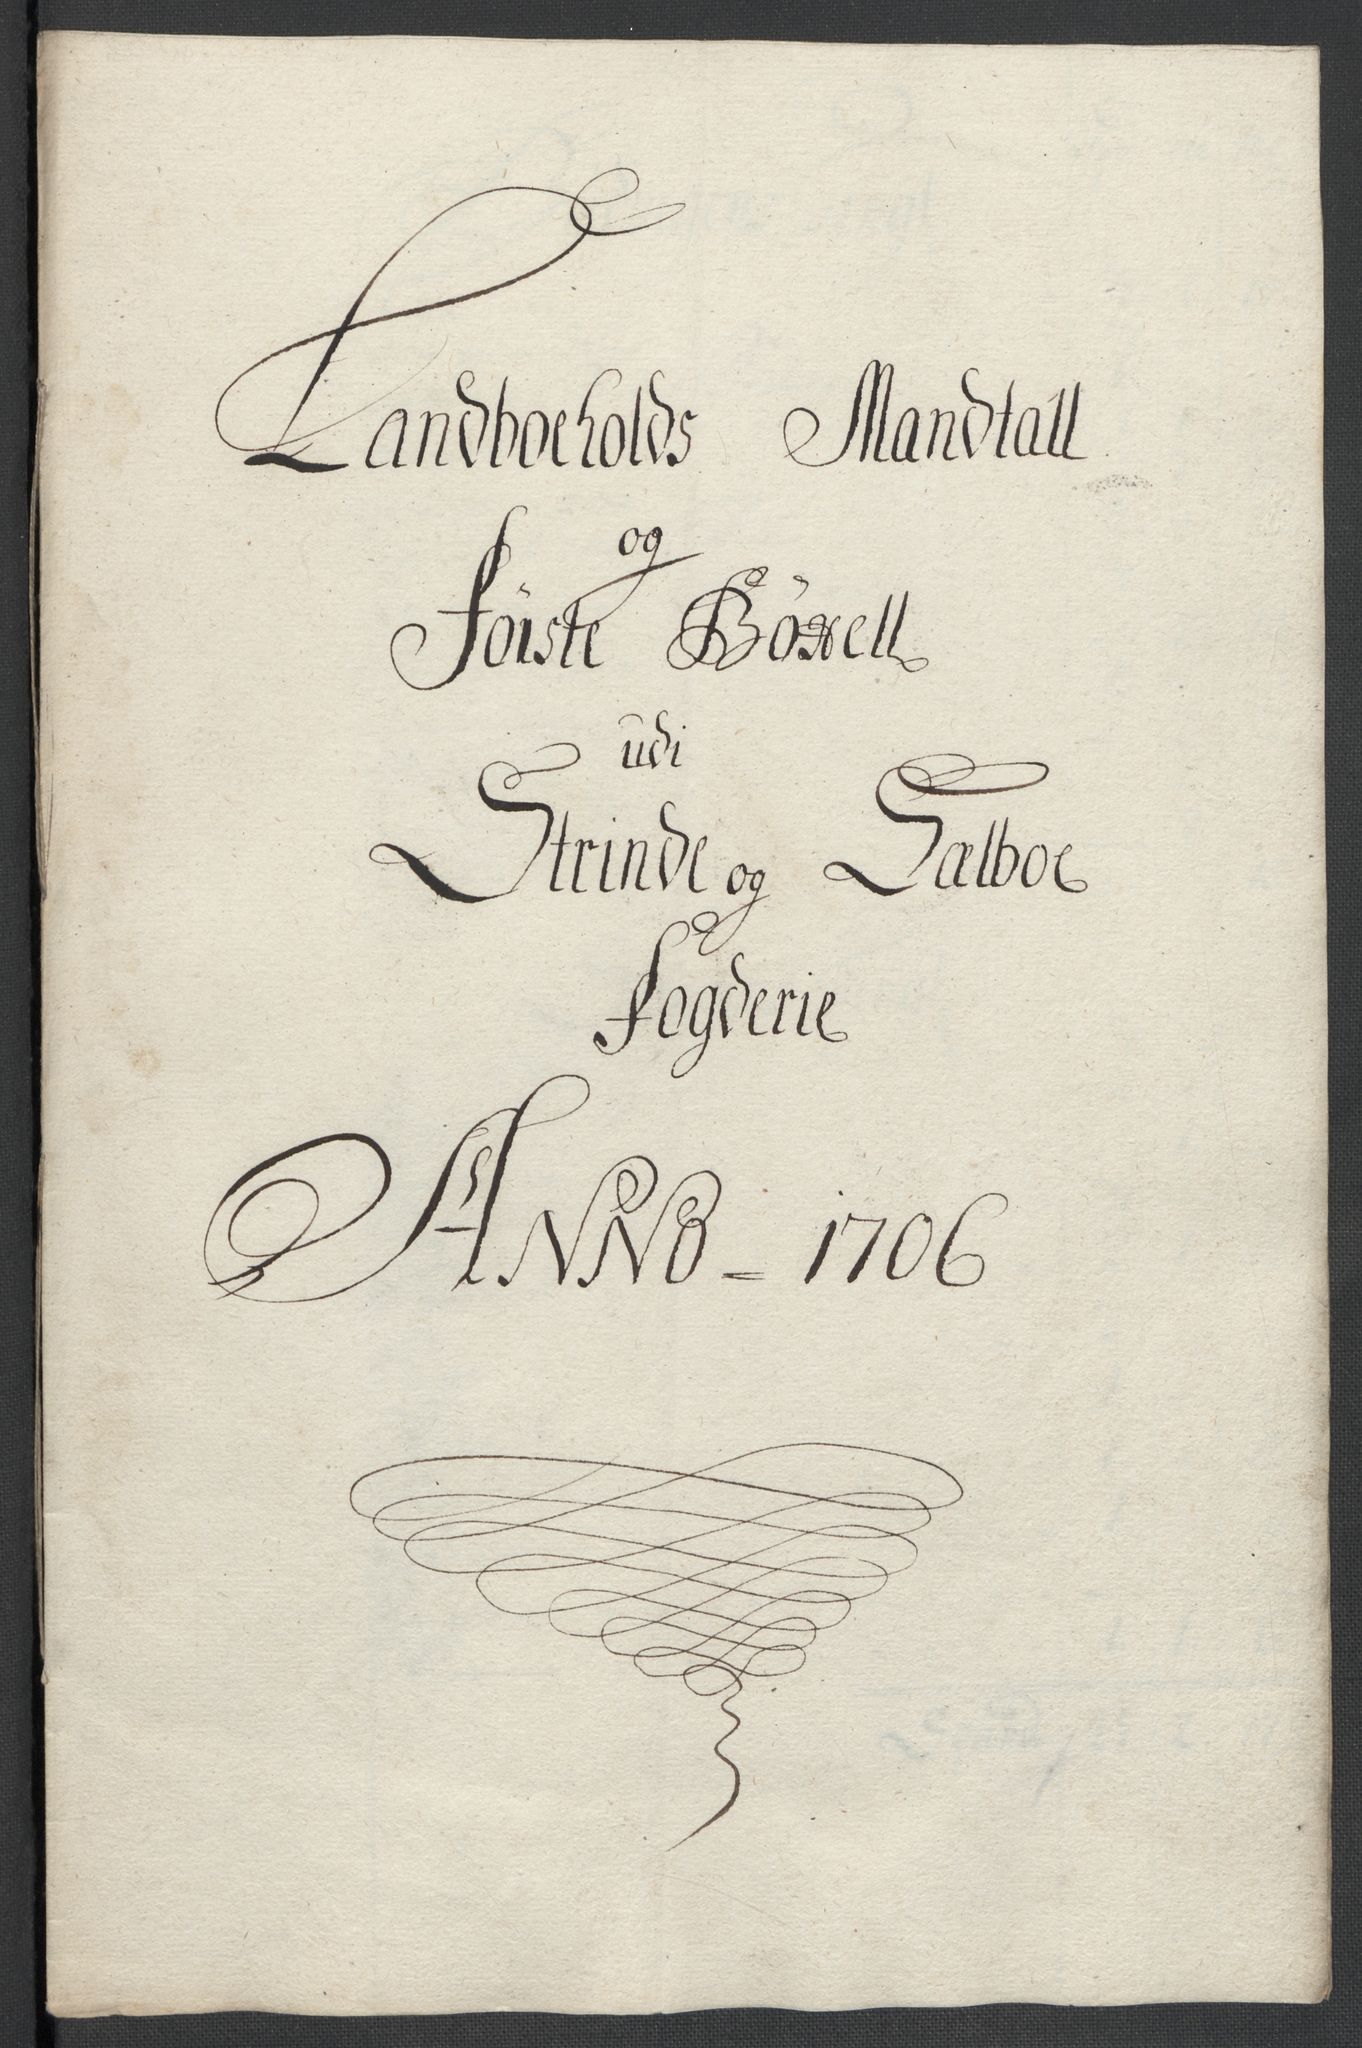 Landboeholds Mandtall
og
Föiste Böxell
udi
Strinde og Sælboe
Fogderie
ANNO - 1706